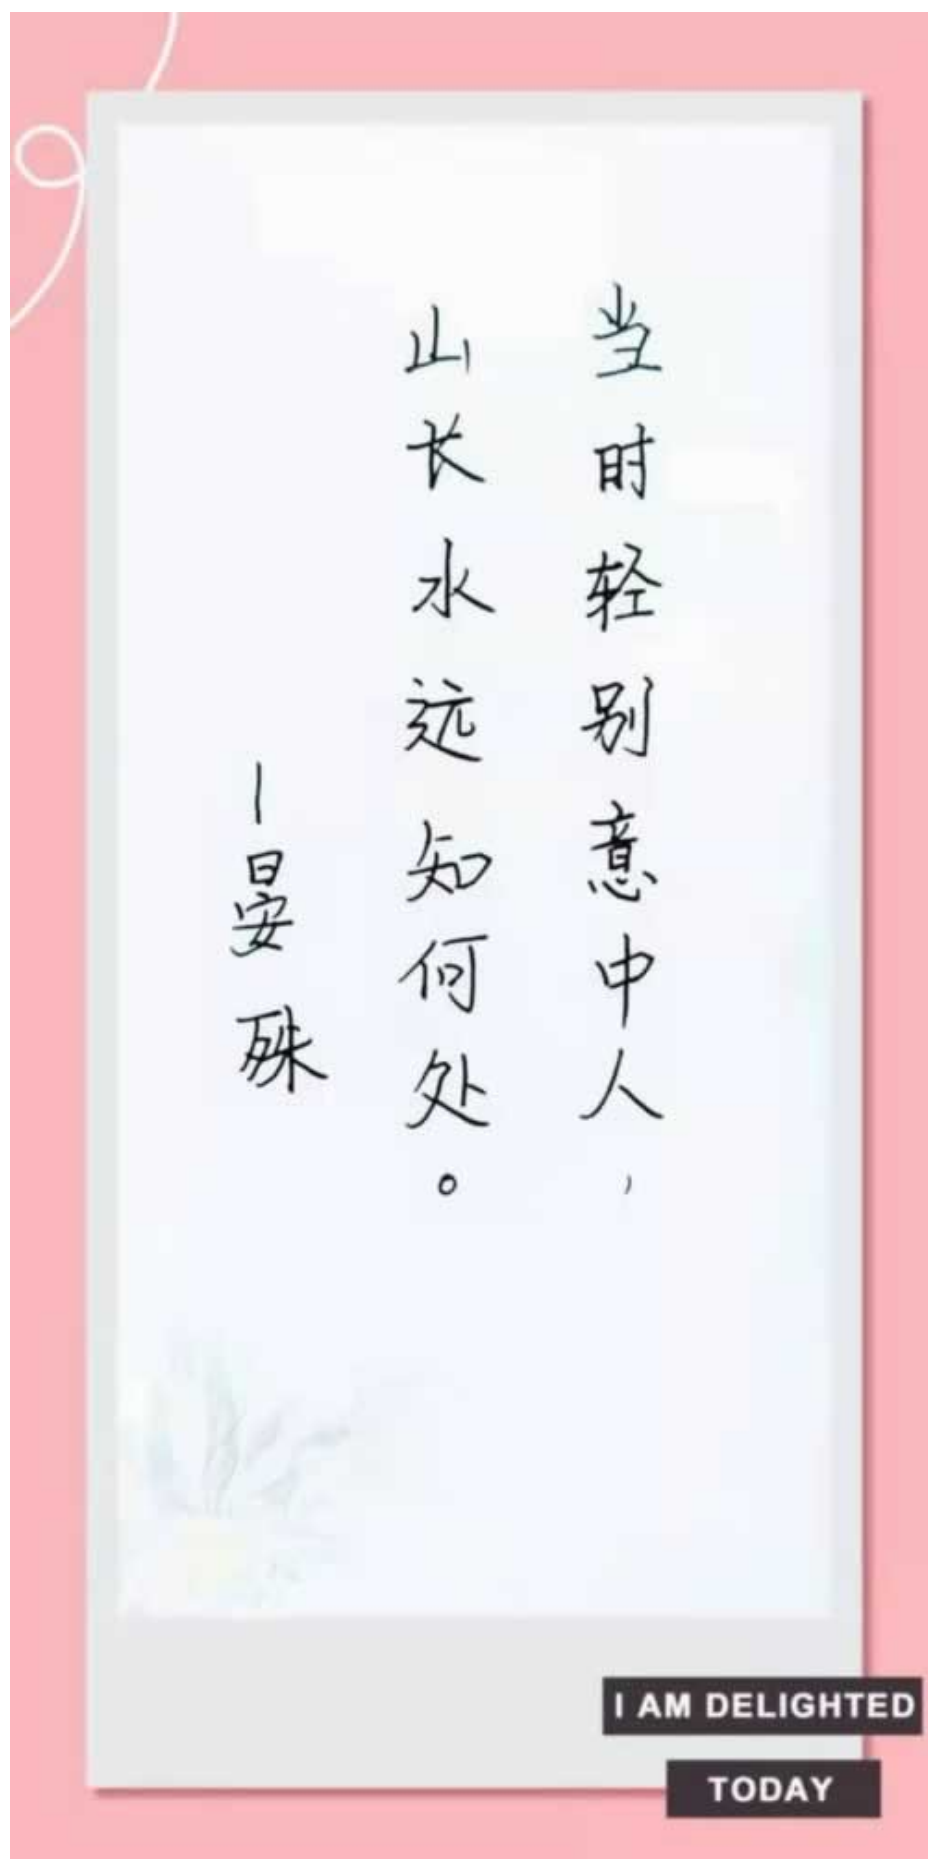 当时轻别意中人，
山长水远知何处。
—晏殊
I AM DELIGHTED
TODAY